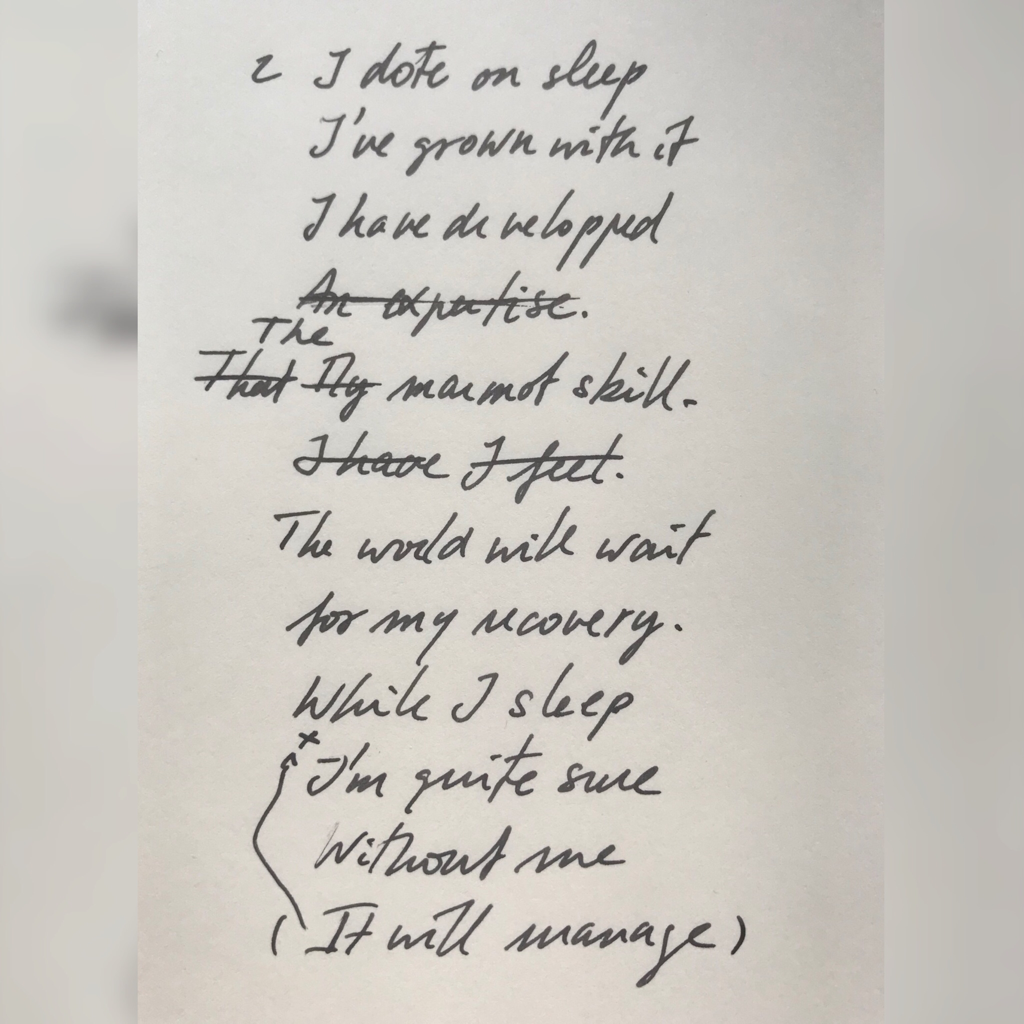 2 I dote on sleep
I've grown with it
I have developped
An expertise.
The
That My marmot skill.
I have I feel.
The world will wait
for my recovery.
While I sleep
x
I'm quite sure
Without me
(It will manage)